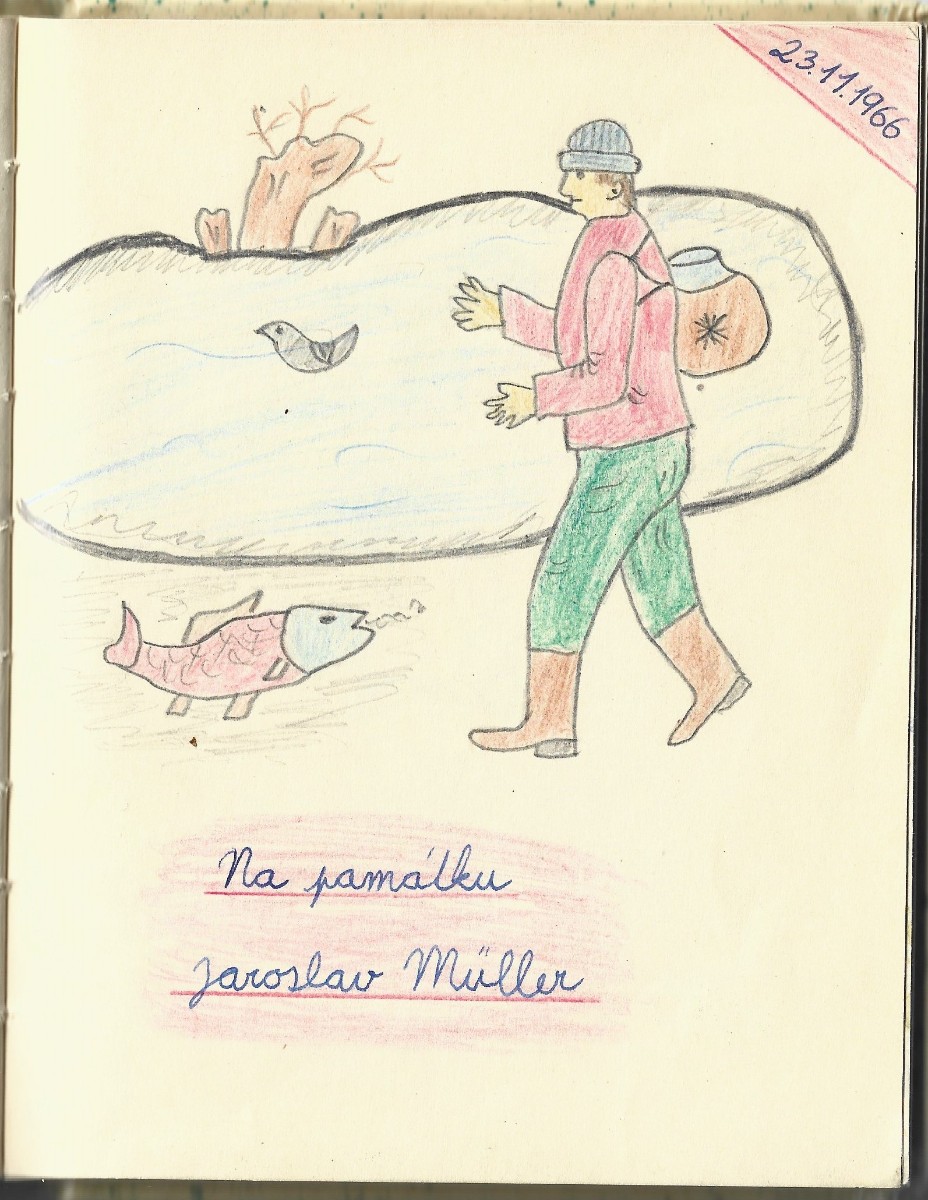 23.11.1966
Na památku
Jaroslav Müller